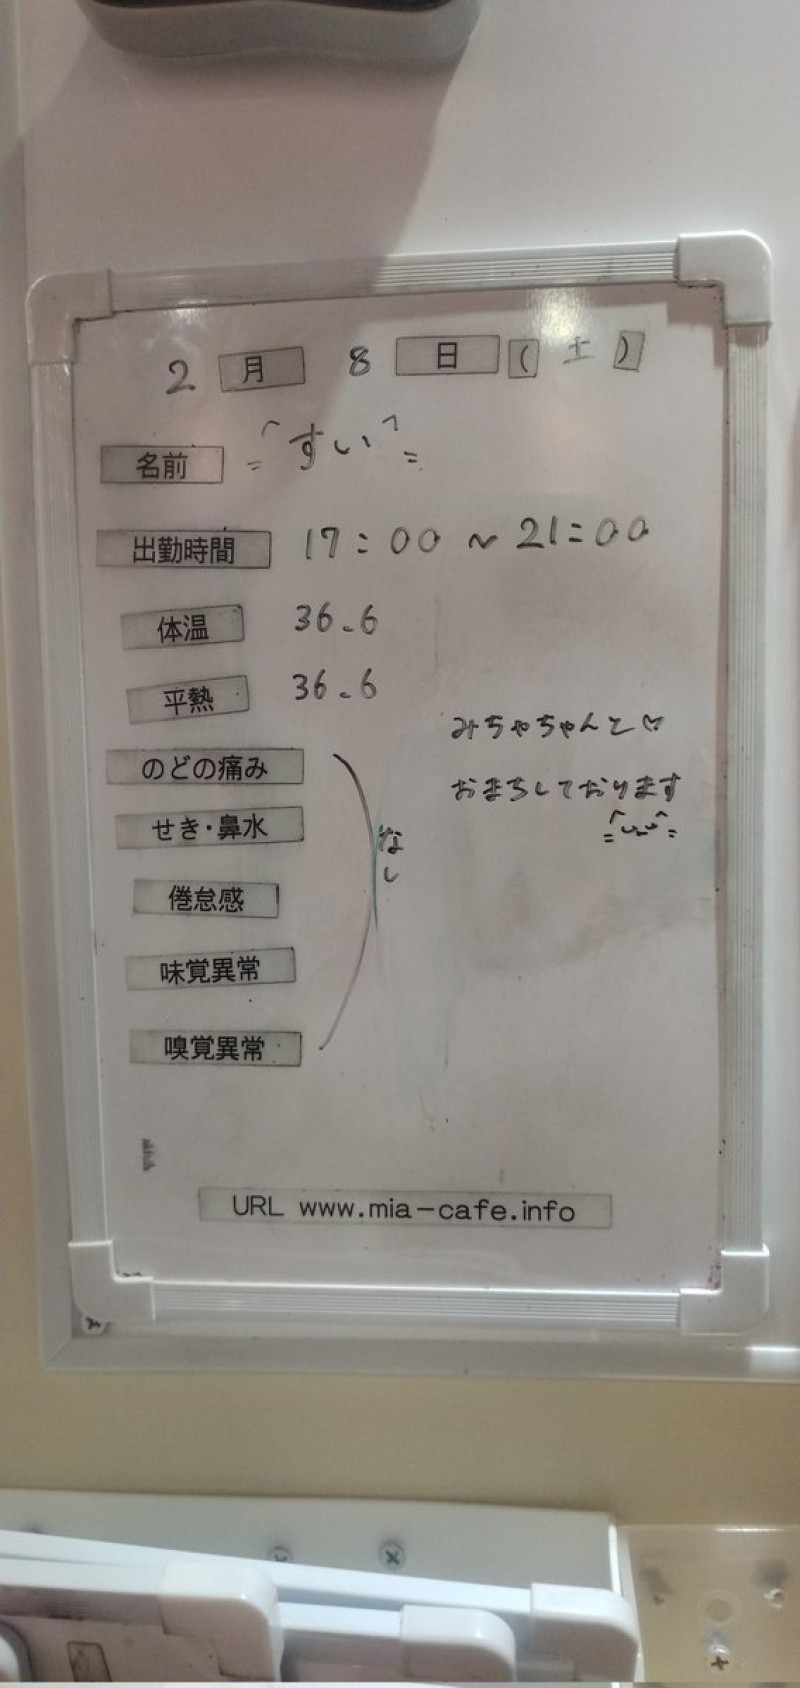 2月8日(土)
名前 すい
出勤時間 17:00~21:00
体温 36.6
平熱 36.6
のどの痛み
せき・鼻水
倦怠感
味覚異常
嗅覚異常
なし
みちゃちゃんと♡
おまちしております
URL www.mia-cafe.info